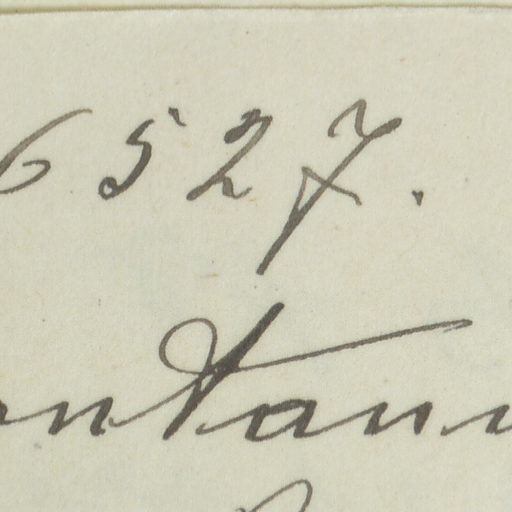 6527.
ontann